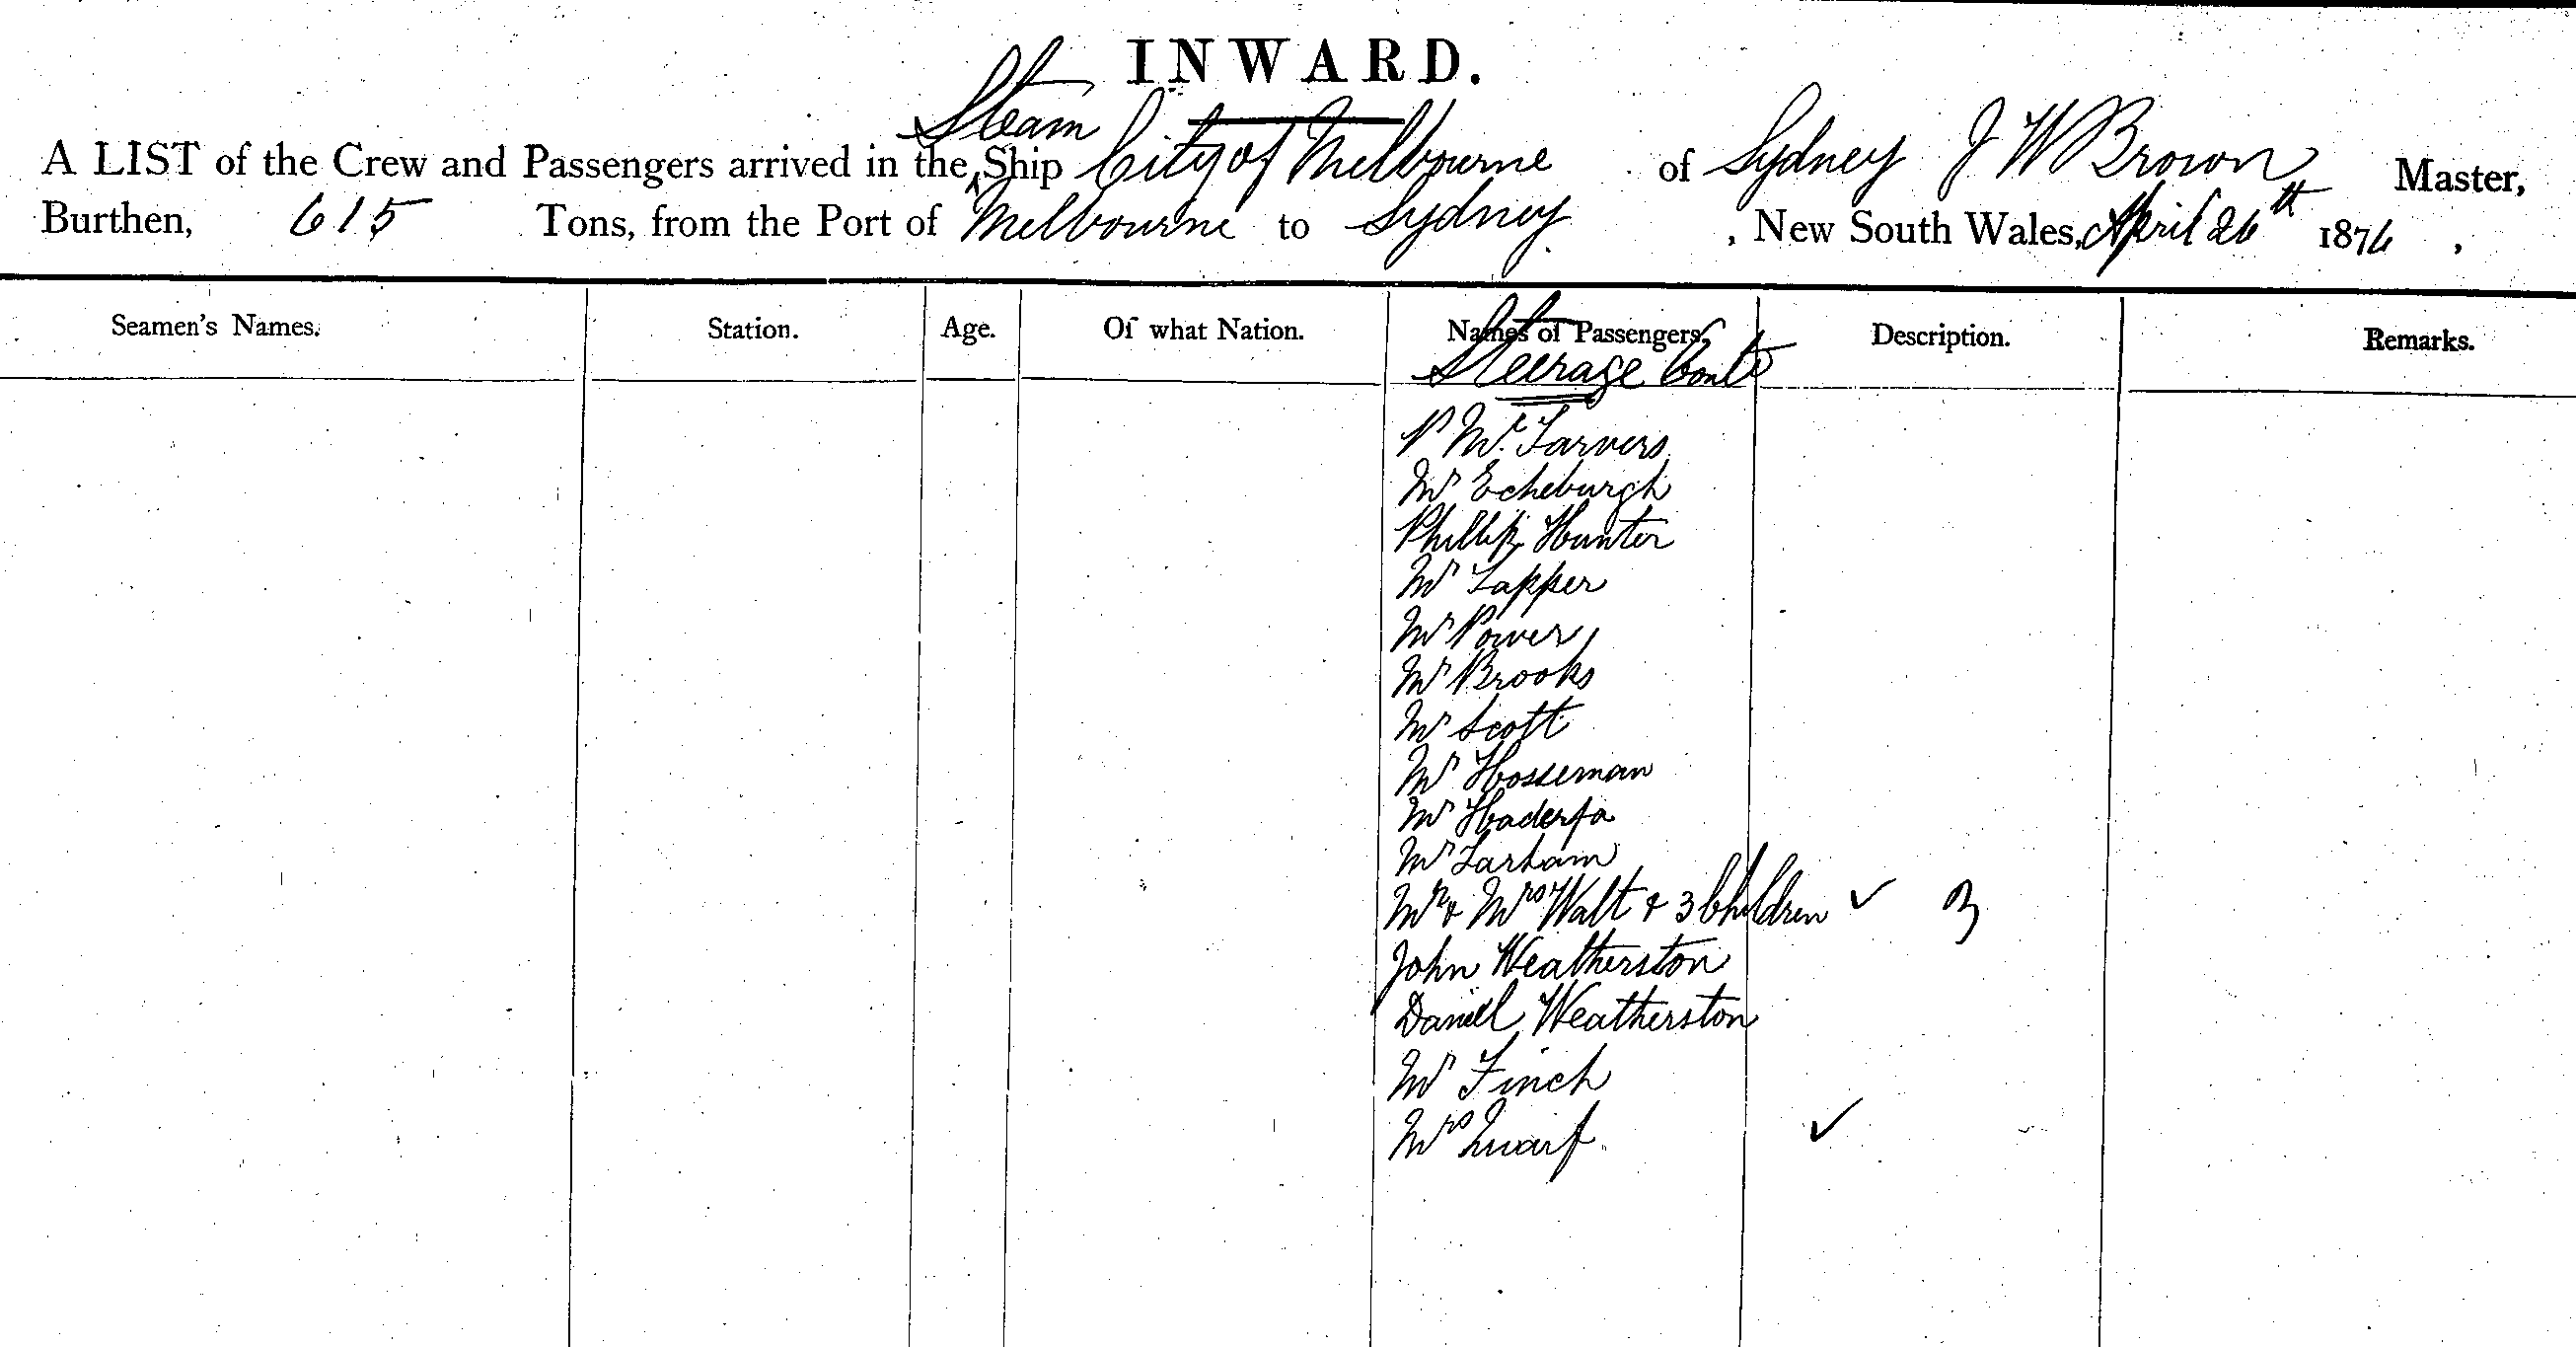 INWARD.
Steam
A LIST of the Crew and Passengers arrived in the ^ Ship City of Melbourne of Sydney J W Brown Master,
Burthen, 615 Tons, from the Port of Melbourne to Sydney , New South Wales, April 26th 1876 ,
Seamen's Names. Station. Age. Of what Nation. Names of Passengers. Description. Remarks.
Steerage Contd
P Mc
Mr Echeburgh
Phillip Hunter
Mr Tapper
Mr Power
Mr Brooks
Mr Scott
Mr Hosseman
Mr
Mr
Mr & Mrs Walt & 3 Children ✓ 3
John Weatherston
Daniel Weatherston
Mr Finch
Mrs ✓